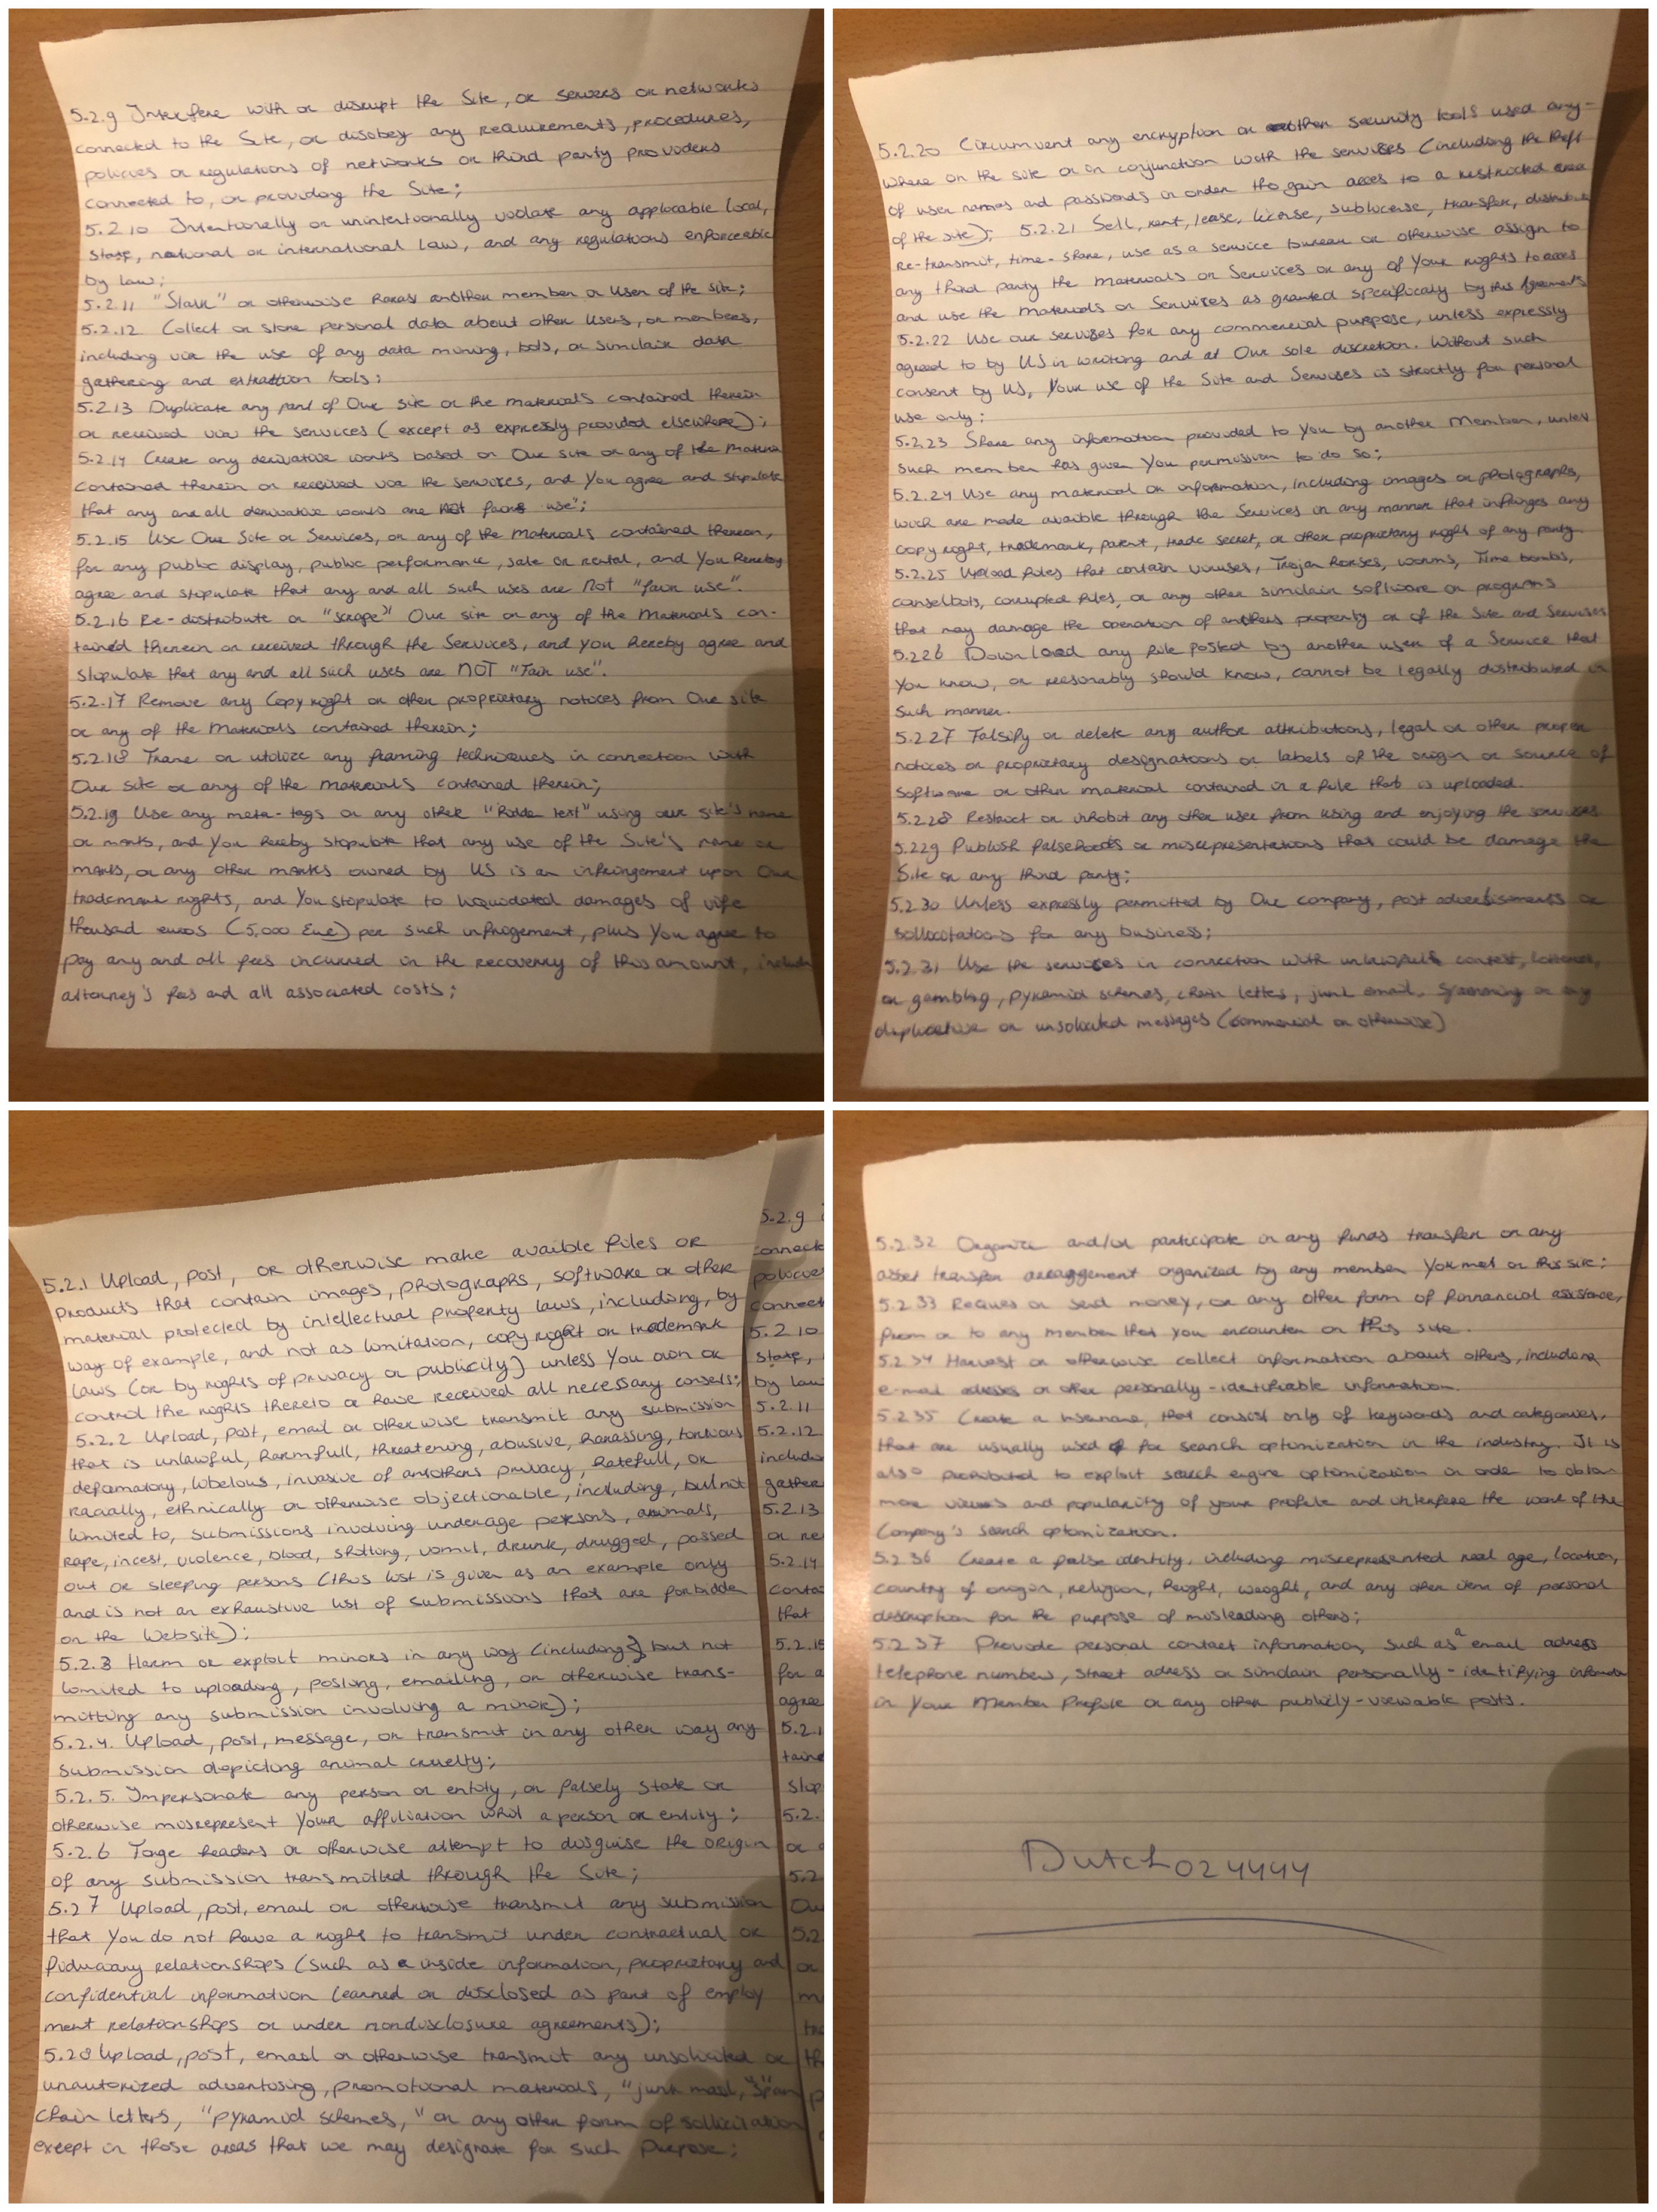 5.2.9 Interfere with or disrupt the Site, or servers or networks
connected to the Site, or disobey any requirements, procedures,
policies or regulations of networks or third party providers
connected to, or providing the Site;
5.2.10 Intentionally or unintentionally violate any applicable local,
state, national or international law, and any regulations enforceable
by law;
5.2.11 "Stalk" or otherwise harass another member or User of the site;
5.2.12 Collect or store personal data about other Users, or members,
including via the use of any data mining, bots, or similair data
gathering and extraction tools;
5.2.13 Duplicate any part of Our site or the materials contained therein
or received via the services (except as expressly provided elsewhere);
5.2.14 Create any derivative works based on Our site or any of the Materials
contained therein or received via the services, and You agree and stipulate
that any and all derivative works are NOT fair use";
5.2.15 Use Our Site or Services, or any of the Materials contained therein,
for any public display, public performance, sale or rental, and You hereby
agree and stipulate that any and all such uses are NOT "fair use".
5.2.16 Re-distribute or "scrape" Our site or any of the Materials con-
tained therein or received through the Services, and you hereby agree and
stipulate that any and all such uses are NOT "Fair use".
5.2.17 Remove any Copyright or other proprietary notices from Our site
or any of the Materials contained therein;
5.2.18 Frame or utilize any framing techniques in connection with
Our site or any of the materials contained therein;
5.2.19 Use any meta-tags or any other "hidden text" using our site's name
or marks, and You hereby stipulate that any use of the Site's name or
marks, or any other marks owned by US is an infringement upon Our
trademark rights, and You stipulate to liquidated damages of vife
thousad euros (5,000 Eur) per such infrigement, plus You agree to
pay any and all fees incurred in the recovery of this amount, includin
attorney's fees and all associated costs;
5.2.20 Circumvent any encryption or other security tools used any-
where on the site or in conjunction with the services (including the theft
of user names and passwords in order tho gain acces to a restricted area
of the site); 5.2.21 Sell, rent, lease, license, sublicense, transfer, distribute
Re-transmit, time-share, use as a service bureau or otherwise assign to
any third party the Materials or Services or any of Your rights to acces
and use the Materials or Services as granted specificaly by this Agreement
5.2.22 Use our services for any commercial purpose, unless expressly
agreed to by US in writing and at Our sole discretion. Without such
consent by US, Your use of the Site and Services is strictly for personal
use only;
5.2.23 Share any information provided to You by another Member, unless
such member has given You permission to do so;
5.2.24 Use any material or information, including images or photographs,
wich are made avaible through the Services in any manner that infringes any
copy right, trademark, patent, trade secret, or other proprietary right of any party.
5.2.25 Upload files that contain viruses, Trojan horses, worms, Time bombs,
canselbots, corrupted files, or any other similair software or programs
that may damage the operation of anothers property or of the Site and Services
5.2.26 Download any file posted by another user of a Service that
You know, or reasonably should know, cannot be legally distributed in
such manner.
5.2.27 Falsify or delete any author attributions, legal or other proper
notices or proprietary designations or labels of the origin or source of
software or other material contained in a file that is uploaded.
5.2.28 Restrict or inhibit any other user from using and enjoying the services
5.2.29 Publish falsehoods or misrepresentations that could be damage the
Site or any third party;
5.2.30 Unless expressly permitted by Our company, post advertisements or
sollicitations for any business;
5.2.31 Use the services in connection with unlawfull contest, lotteries,
or gambling, pyramid schemes, chain letters, junk email, spamming or any
duplicative or unsolicited messages (commercial or otherwise)
5.2.1 Upload, post, or otherwise make avaible files or
products that contain images, photographs, software or other
material protected by intellectual property laws, including, by
way of example, and not as limitation, copy right or trademark
laws (or by rights of privacy or publicity) unless You own or
control the rights thereto or have received all necessary consents;
5.2.2 Upload, post, email or otherwise transmit any submission
that is unlawful, harmfull, threatening, abusive, harassing, tortious
defamatory, libelous, invasive of anothers privacy, hatefull, or
racially, ethnically or otherwise objectionable, including, but not
limited to, submissions involving underage persons, animals,
rape, incest, violence, blood, shitting, vomit, drunk, drugged, passed
out or sleeping persons (this list is given as an example only
and is not an exhaustive list of submissions that are forbidde
on the Website);
5.2.3 Harm or exploit minors in any way (including, but not
limited to uploading, posting, emailing, or otherwise trans-
mitting any submission involving a minor);
5.2.4. Upload, post, message, or transmit in any other way any
submission depicting animal cruelty;
5.2.5. Impersonate any person or entity, or falsely state or
otherwise misrepresent Your affiliation whit a person or entity;
5.2.6 Forge headers or otherwise attempt to disguise the origin
of any submission transmitted through the Site;
5.2.7 Upload, post, email or otherwise transmit any submission
that You do not have a right to transmit under contractual or
fiduciary relationships (such as inside information, proprietary and
confidential information learned or disclosed as part of employ
ment relationships or under nondisclosure agreements);
5.2.8 Upload, post, email or otherwise transmit any unsolicited or
unautorized advertising, promotional materials, "junk mail, "spam
Chain letters, "pyramid schemes," or any other form of sollicitation
except in those areas that we may designate for such purpose;
5.2.9
connecte
policies
connect
5.2.10
state,
by law
5.2.11
5.2.12
includin
gather
5.2.13
or re
5.2.14
contai
that
5.2.15
for a
agree
5.2.1
taine
stip
5.2.
or
5.2
Ou
5.2
or
m
5.2.32 Organize and/or participate in any funds transfer or any
asset transfer arraggement organized by any member You met on this site;
5.2.33 Reques or send money, or any other form of finnancial assistance,
from or to any member that you encounter on this site.
5.2.34 Harvest or otherwise collect information about others, including
e-mail adesses or other personally-identifiable information.
5.2.35 Create a Username, that consist only of keywords and categories,
that are usually used for search optimization in the industry. It is
also prohibited to exploit search engine optimization in order to obtain
more views and popularity of your profile and interfere the work of the
Company's search optomization.
5.2.36 Create a false identity, including misrepresented real age, location,
country of origin, religion, height, weight, and any other item of personal
description for the purpose of misleading others;
5.2.37 Provide personal contact information, such as a email adress
telephone number, street adress or similair personally-identifying informatio
in Your Member Profile or any other publicly-viewable posts.
Dutch024444